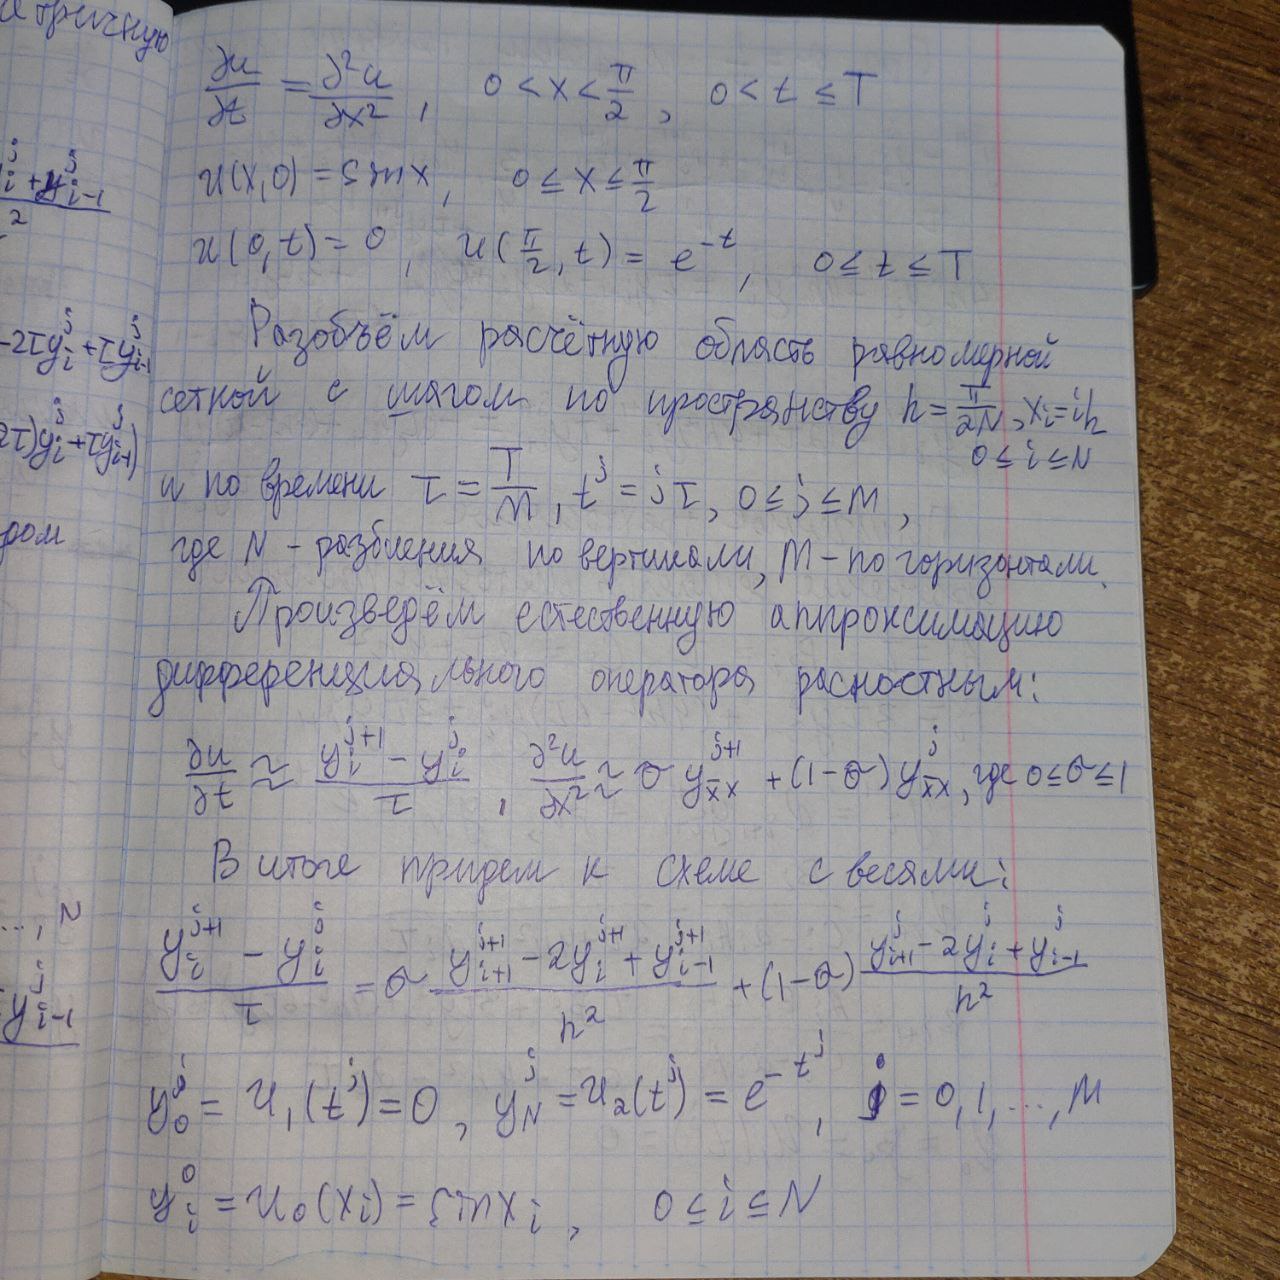 ричную
∂u/∂t = ∂²u/∂x², 0 < x < π/2, 0 < t ≤ T
u(x,0) = sin x, 0 ≤ x ≤ π/2
u(0,t) = 0, u(π/2, t) = e^{-t}, 0 ≤ t ≤ T
Разобьём расчётную область равномерной
сеткой с шагом по пространству h = π/2N, x_i = ih
0 ≤ i ≤ N
и по времени τ = T/M, t^j = jτ, 0 ≤ j ≤ M,
где N - разбиения по вертикали, M - по горизонтали.
Произведём естественную аппроксимацию
дифференциального оператора разностным:
∂u/∂t ≈ (y_i^{j+1} - y_i^j)/τ, ∂²u/∂x² ≈ σ y_{x̄x}^{j+1} + (1-σ) y_{x̄x}^j, где 0 ≤ σ ≤ 1
В итоге придем к схеме с весами:
(y_i^{j+1} - y_i^j)/τ = σ (y_{i+1}^{j+1} - 2y_i^{j+1} + y_{i-1}^{j+1})/h² + (1-σ) (y_{i+1}^j - 2y_i^j + y_{i-1}^j)/h²
y_0^j = u_1(t^j) = 0, y_N^j = u_2(t^j) = e^{-t^j}, j = 0,1,...,M
y_i^0 = u_0(x_i) = sin x_i, 0 ≤ i ≤ N
+ y_{i-1}^j
2
-2τy_i^j + τy_{i-1}^j
2τ)y_i^j + τy_{i-1}^j)
ром
..., N
y_{i-1}^j